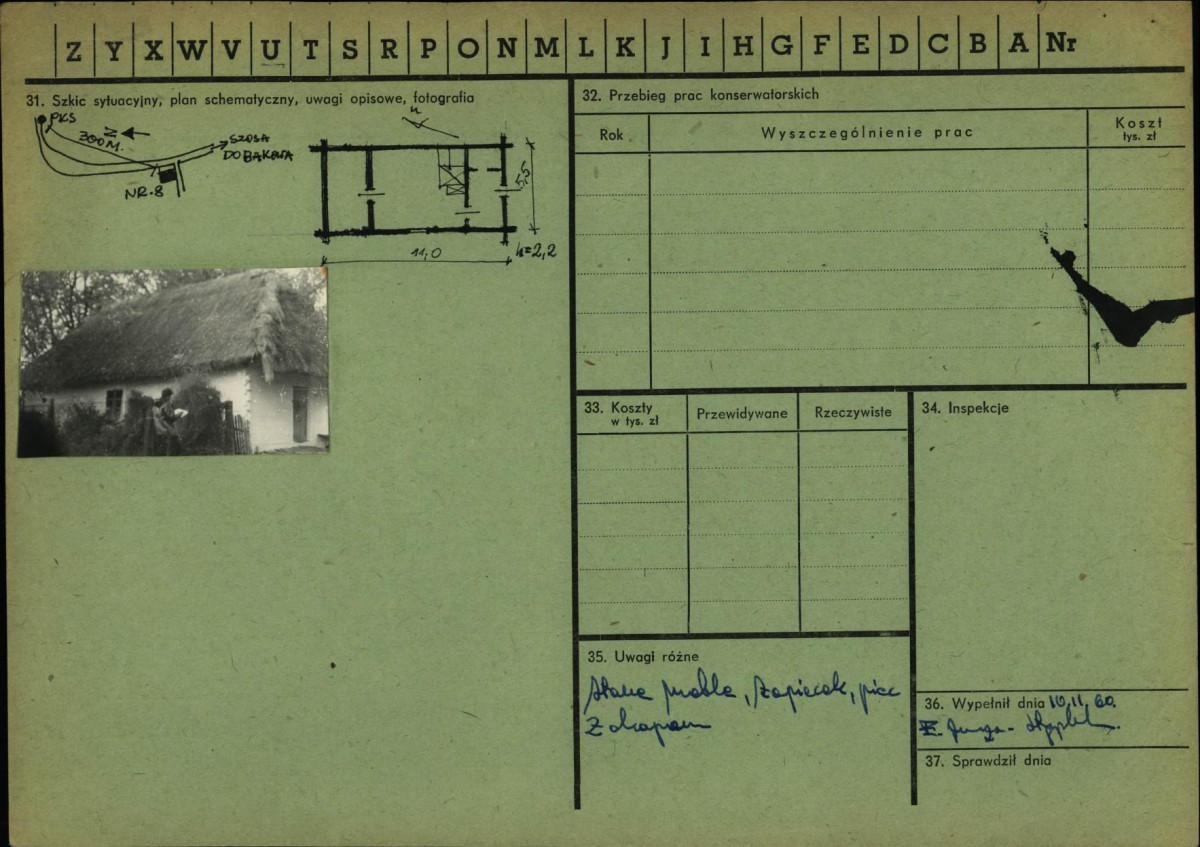 Z Y X W V U T S R P O N M L K J I H G F E D C B A Nr
31. Szkic sytuacyjny, plan schematyczny, uwagi opisowe, fotografia
PKS
Z
300 M.
SZOSA
DO BAKOTA
NR. 8
N
5,5
11,0
h=2,2
32. Przebieg prac konserwatorskich
Rok
Wyszczególnienie prac
Koszt
tys. zł
33. Koszty
w tys. zł
Przewidywane
Rzeczywiste
34. Inspekcje
35. Uwagi różne
Stare meble, zapiecek, piec
z okapem
36. Wypełnił dnia 10.11.60.
37. Sprawdził dnia